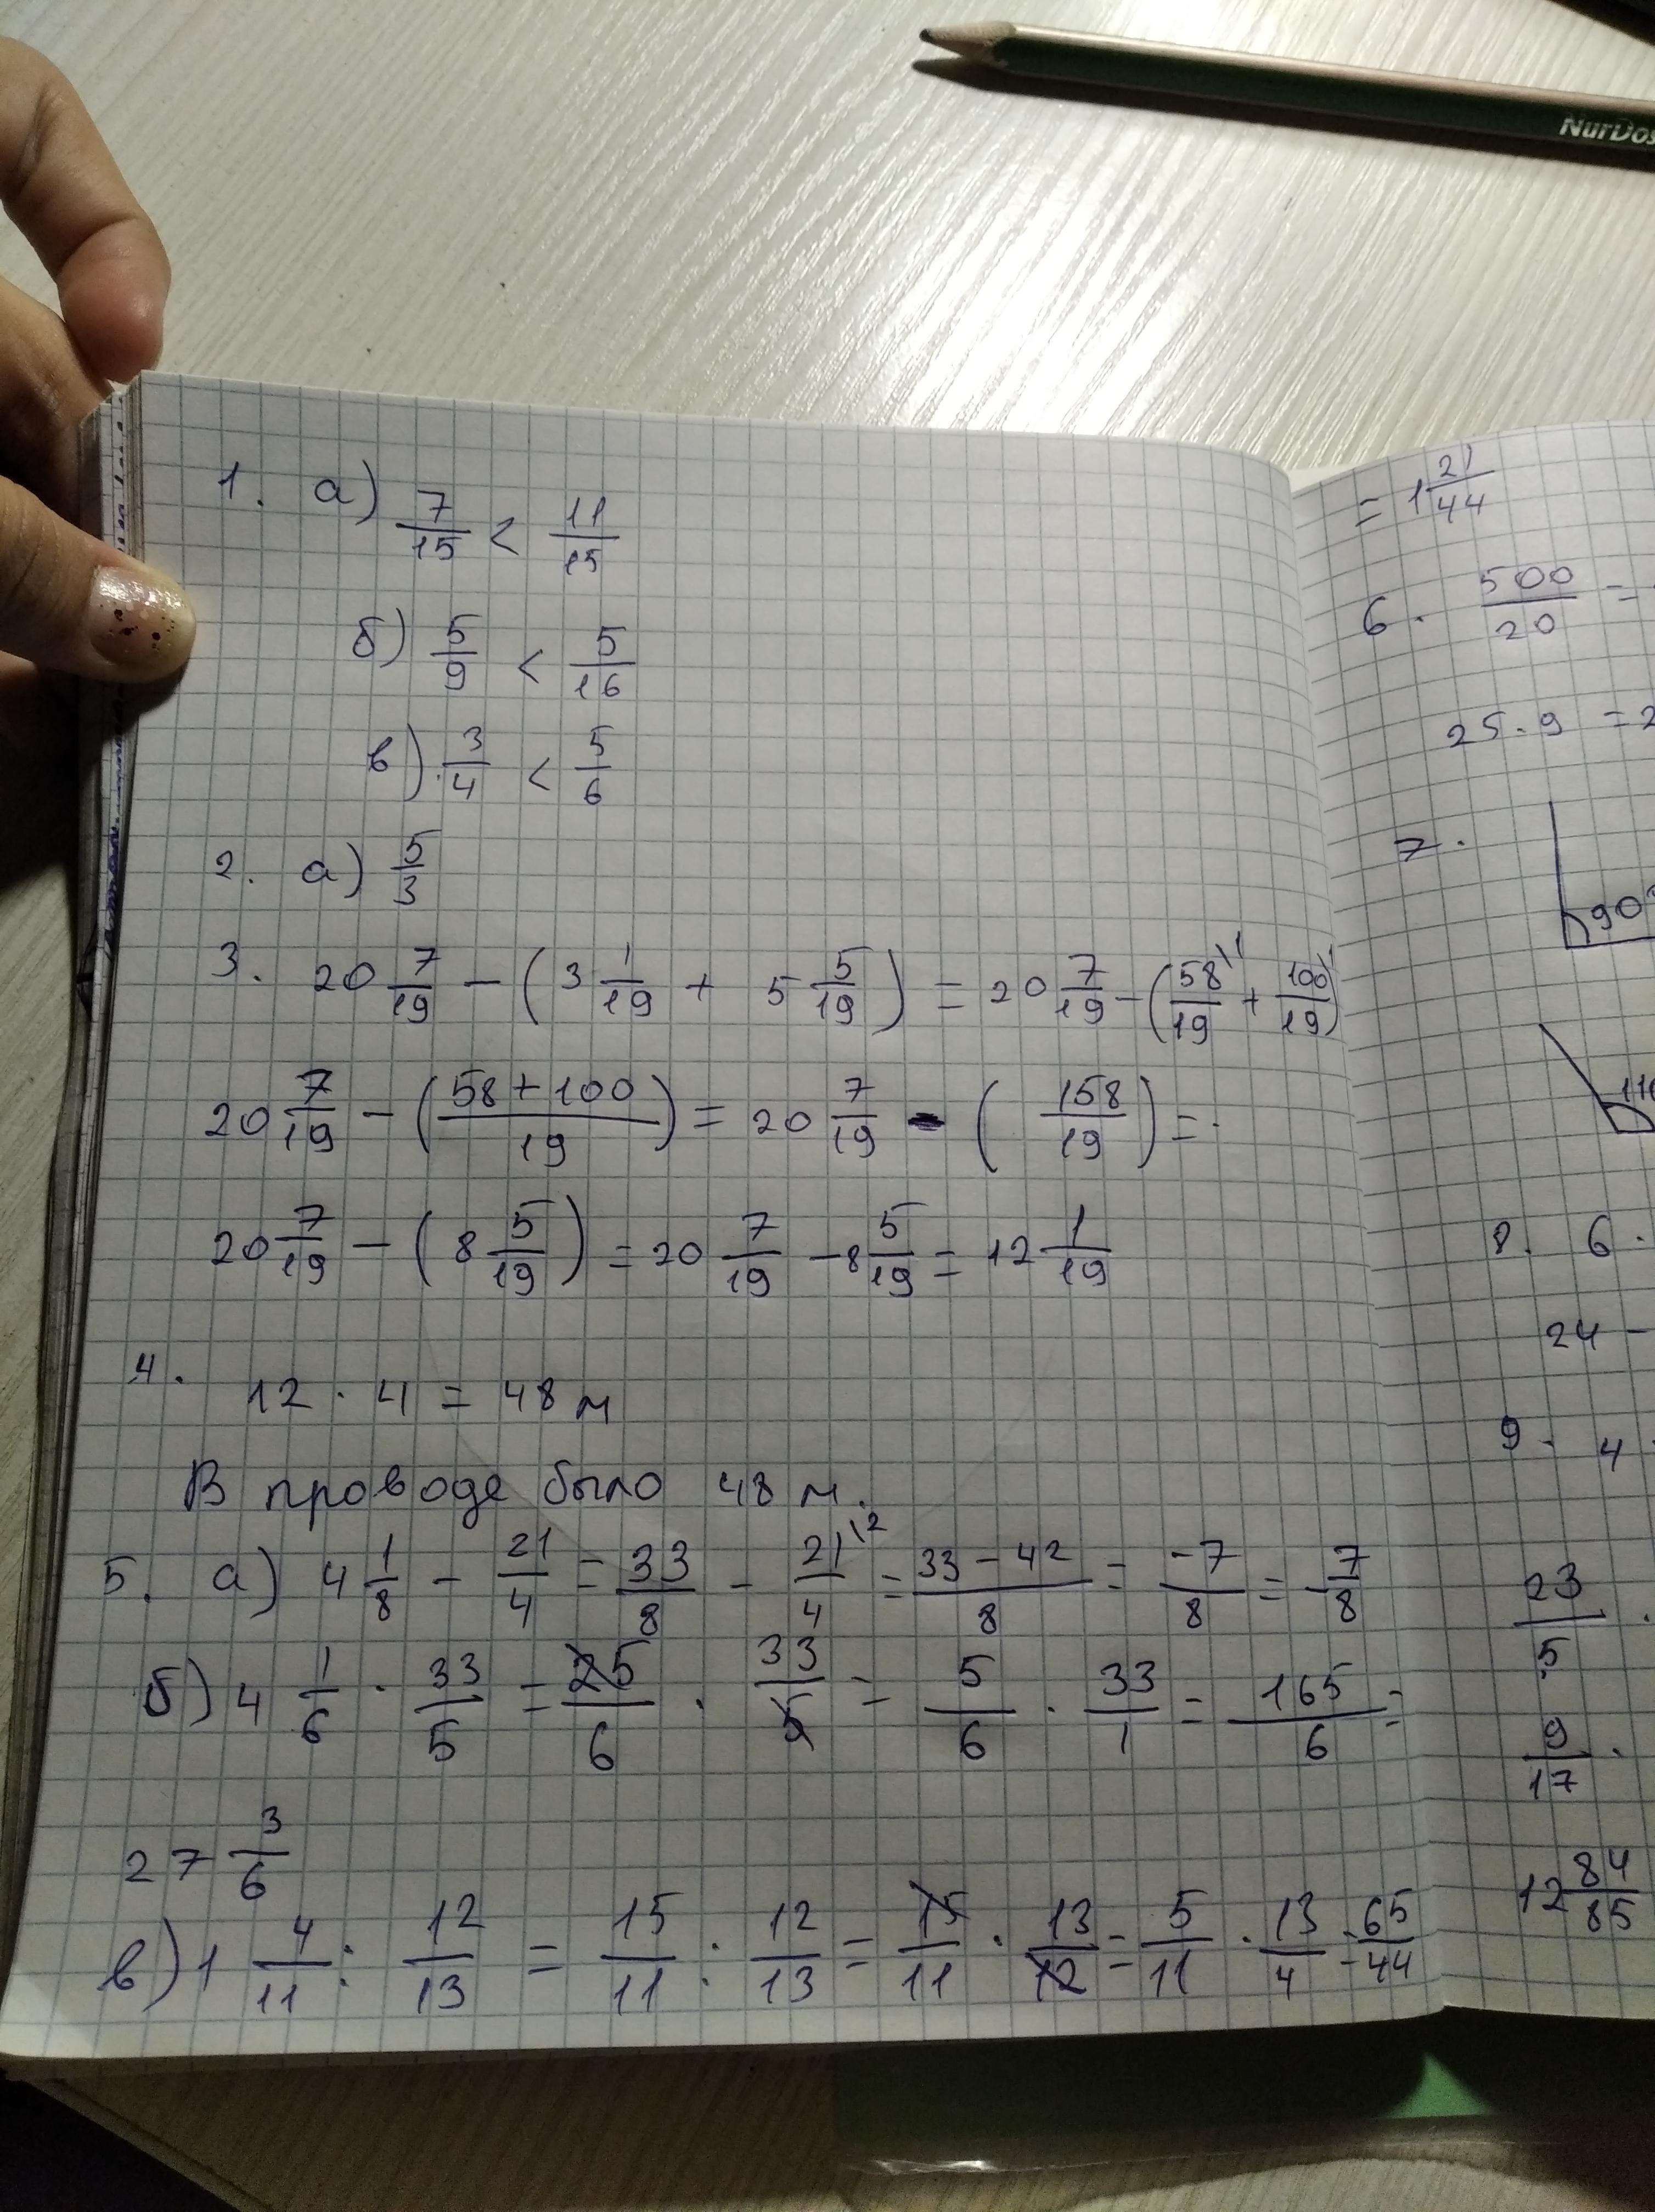 NurDos
1. а) 7/15 < 11/15
б) 5/9 < 5/16
в) 3/4 < 5/6
2. а) 5/3
3. 20 7/19 - (3 1/19 + 5 5/19) = 20 7/19 - (58/19 + 100/19)
20 7/19 - (58+100/19) = 20 7/19 - (158/19) =
20 7/19 - (8 5/19) = 20 7/19 - 8 5/19 = 12 1/19
4.
12 · 4 = 48 м
В проводе было 48 м.
5. а) 4 1/8 - 21/4 = 33/8 - 21/4 \2 = 33-42/8 = -7/8 = -7/8
б) 4 1/6 · 33/5 = 25/6 · 33/5 = 5/6 · 33/1 = 165/6 =
27 3/6
в) 1 4/11 : 12/13 = 15/11 : 12/13 = 15/11 · 13/12 = 5/11 · 13/4 = 65/44
= 1 21/44
6. 500/20 =
25 · 9 = 2
7.
90°
110
8. 6 ·
24 -
9. 4
23/5 ·
9/17 ·
12 84/85